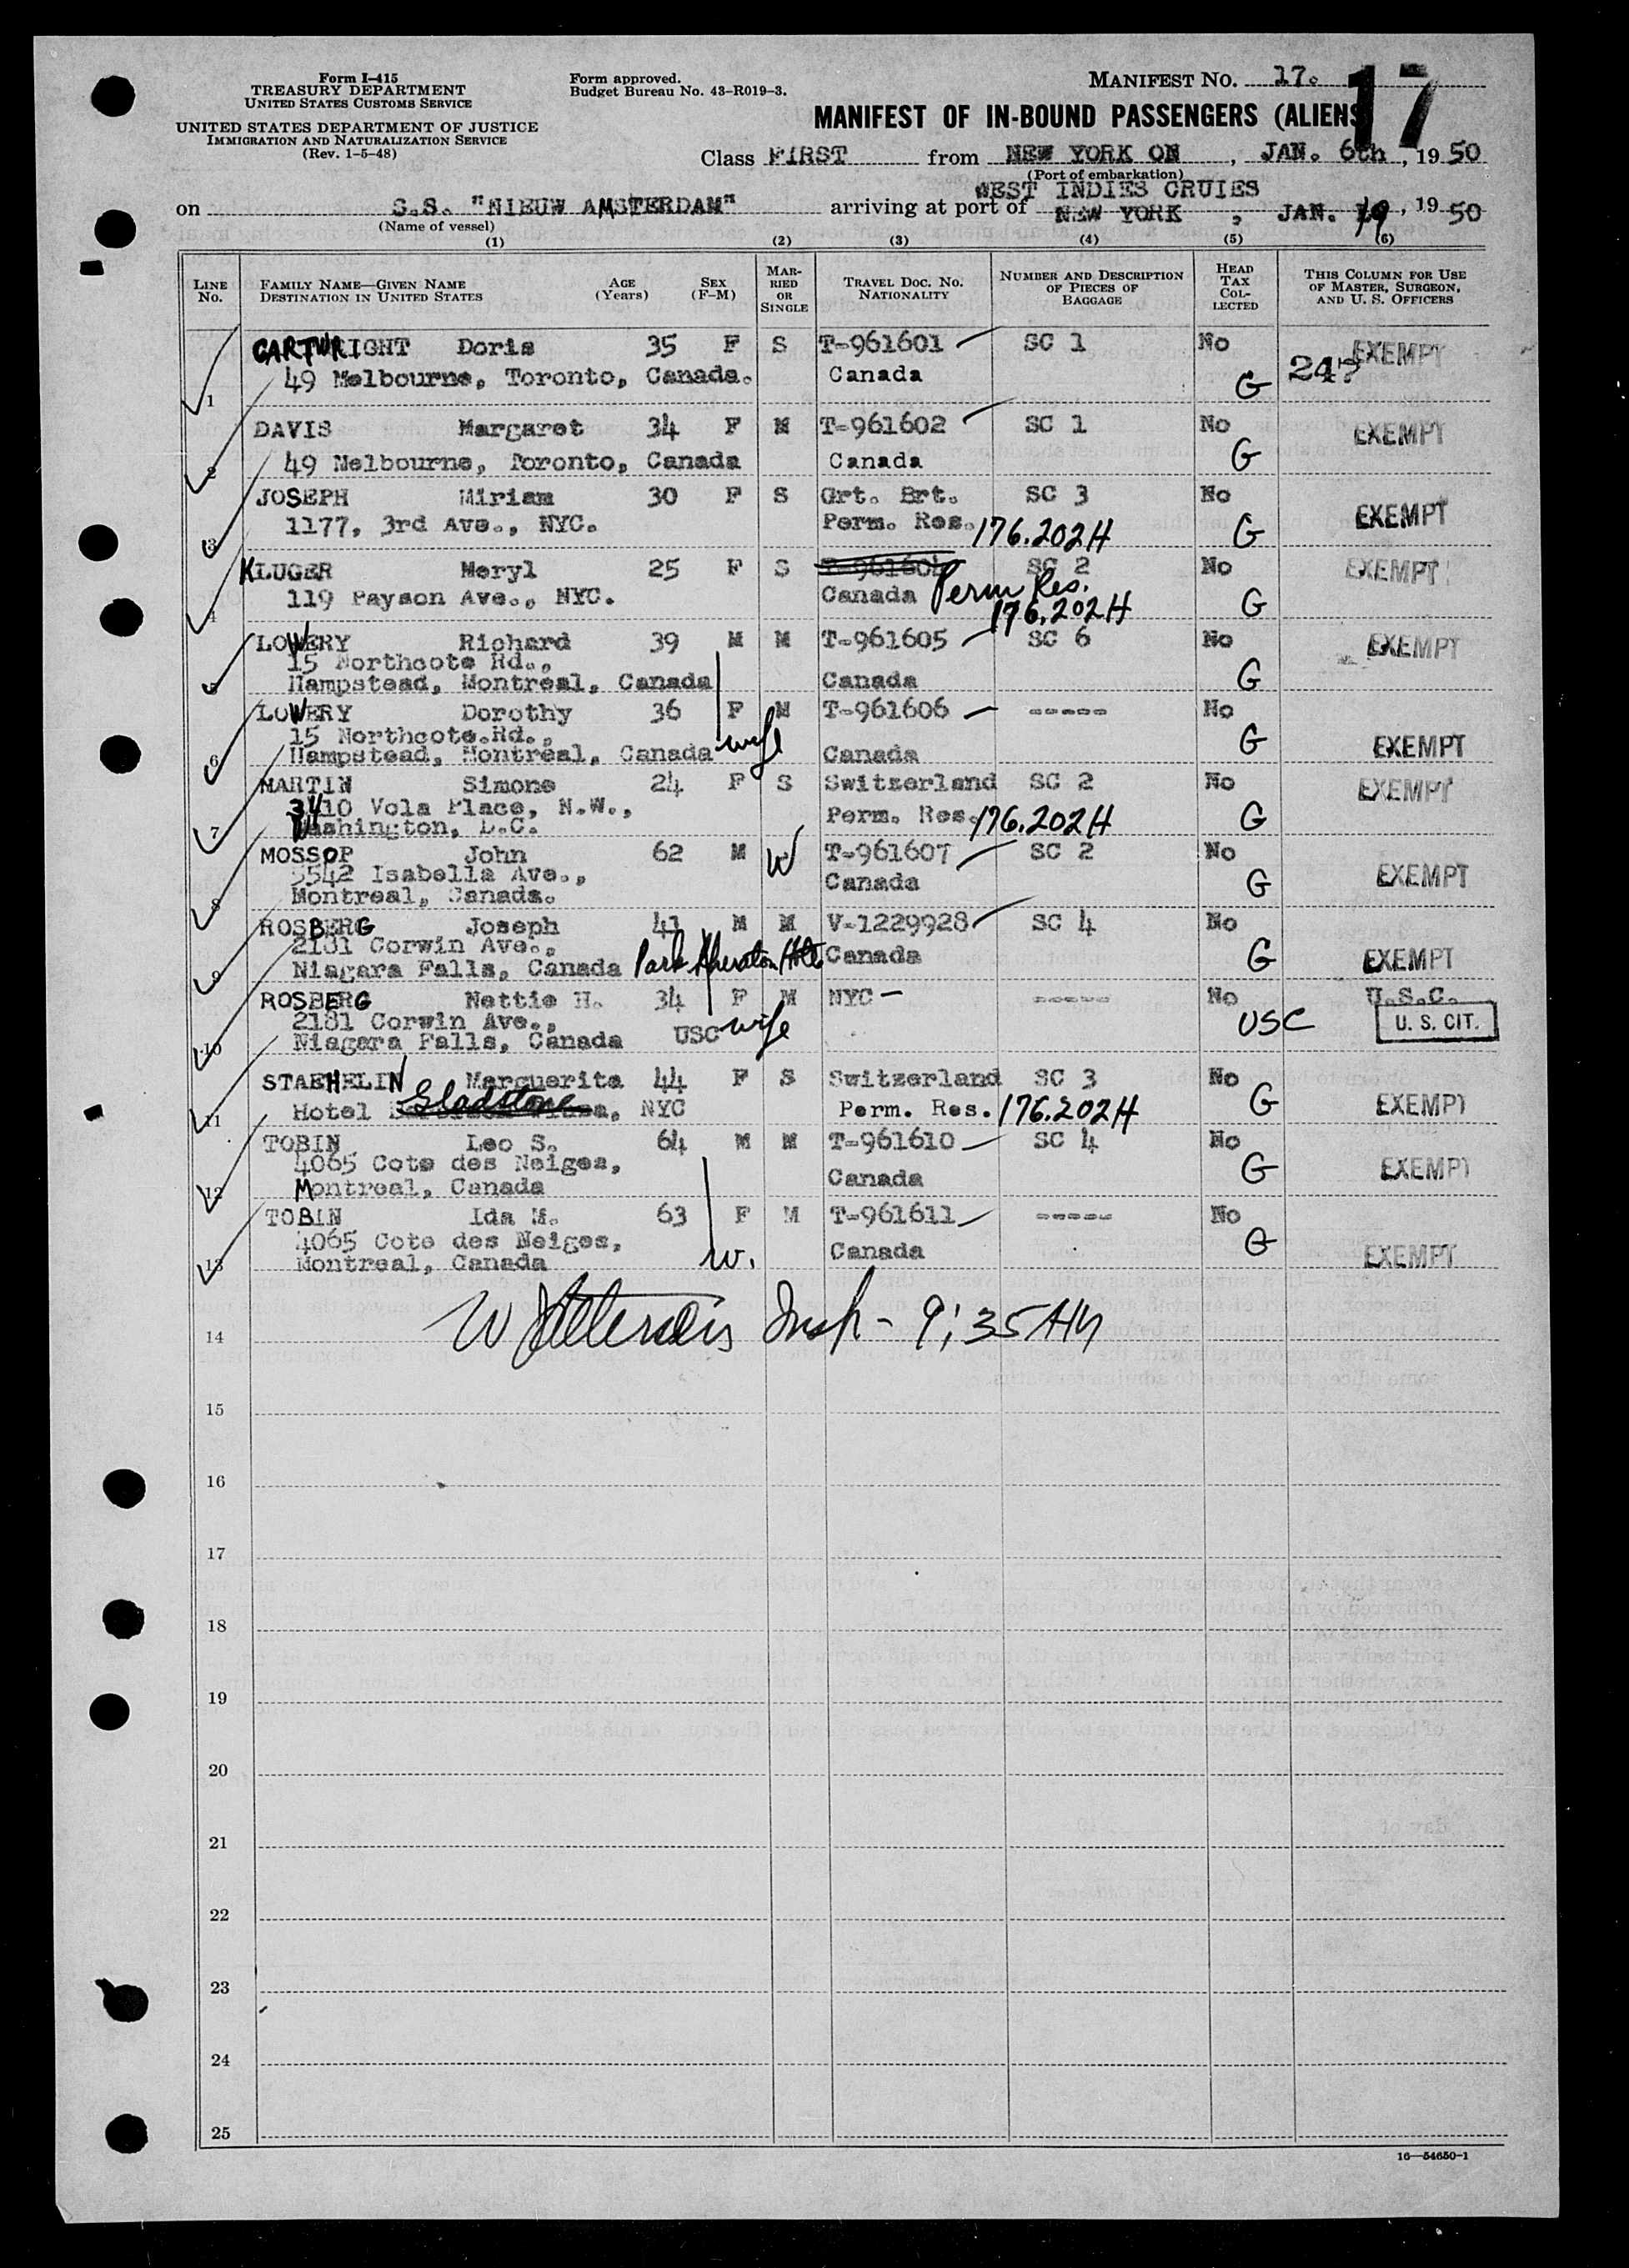 Form I-415
TREASURY DEPARTMENT
UNITED STATES CUSTOMS SERVICE
UNITED STATES DEPARTMENT OF JUSTICE
IMMIGRATION AND NATURALIZATION SERVICE
(Rev. 1-5-48)
Form approved.
Budget Bureau No. 43-R019-3.
MANIFEST NO. 17. 17
MANIFEST OF IN-BOUND PASSENGERS (ALIENS
Class FIRST from NEW YORK ON, JAN. 6th, 19 50
(Port of embarkation)
WEST INDIES CRUIES
on S.S. "NIEUW AMSTERDAM" arriving at port of NEW YORK, JAN. 19, 19 50
(Name of vessel)
(1) (2) (3) (4) (5) (6)
LINE No. FAMILY NAME—GIVEN NAME DESTINATION IN UNITED STATES AGE (Years) SEX (F-M) MARRIED OR SINGLE TRAVEL DOC. NO. NATIONALITY NUMBER AND DESCRIPTION OF PIECES OF BAGGAGE HEAD TAX COLLECTED THIS COLUMN FOR USE OF MASTER, SURGEON, AND U. S. OFFICERS
CARTWRIGHT Doris 35 F S T-961601 SC 1 No EXEMPT
1 49 Melbourne, Toronto, Canada. Canada G 24?
DAVIS Margaret 34 F M T-961602 SC 1 No EXEMPT
2 49 Melbourne, Toronto, Canada Canada G
JOSEPH Miriam 30 F S Grt. Brt. SC 3 No EXEMPT
3 1177, 3rd Ave., NYC. Perm. Res. 176.202H G
KLUGER Meryl 25 F S T-961604 SC 2 No EXEMPT
4 119 Payson Ave., NYC. Canada Perm Res. 176.202H G
LOWERY Richard 39 M M T-961605 SC 6 No EXEMPT
15 Northcote Rd.,
5 Hampstead, Montreal, Canada Canada G
LOWERY Dorothy 36 F M T-961606 ----- No
15 Northcote.Rd., wife G
6 Hampstead, Montreal, Canada Canada EXEMPT
MARTIN Simone 24 F S Switzerland SC 2 No EXEMPT
3410 Vola Place, N.W., Perm. Res. 176.202H G
7 Washington, D.C.
MOSSOP John 62 M W T-961607 SC 2 No
5542 Isabella Ave., Canada G EXEMPT
8 Montreal, Canada.
ROSBERG Joseph 41 M M V-1229928 SC 4 No
2181 Corwin Ave.,
9 Niagara Falls, Canada Park Sheraton Hotel Canada G EXEMPT
ROSBERG Nettie H. 34 F M NYC ----- No U.S.C.
2181 Corwin Ave., USC wife USC U. S. CIT.
10 Niagara Falls, Canada
STAEHELIN Marguerite 44 F S Switzerland SC 3 No
11 Hotel Gladstone, NYC Perm. Res. 176.202H G EXEMPT
TOBIN Leo S. 64 M M T-961610 SC 4 No
4065 Cote des Neiges, G EXEMPT
12 Montreal, Canada Canada
TOBIN Ida M. 63 F M T-961611 ----- No
4065 Cote des Neiges, Canada G
13 Montreal, Canada w. EXEMPT
14 Insp - 9:35 AM
15
16
17
18
19
20
21
22
23
24
25
16—54650-1